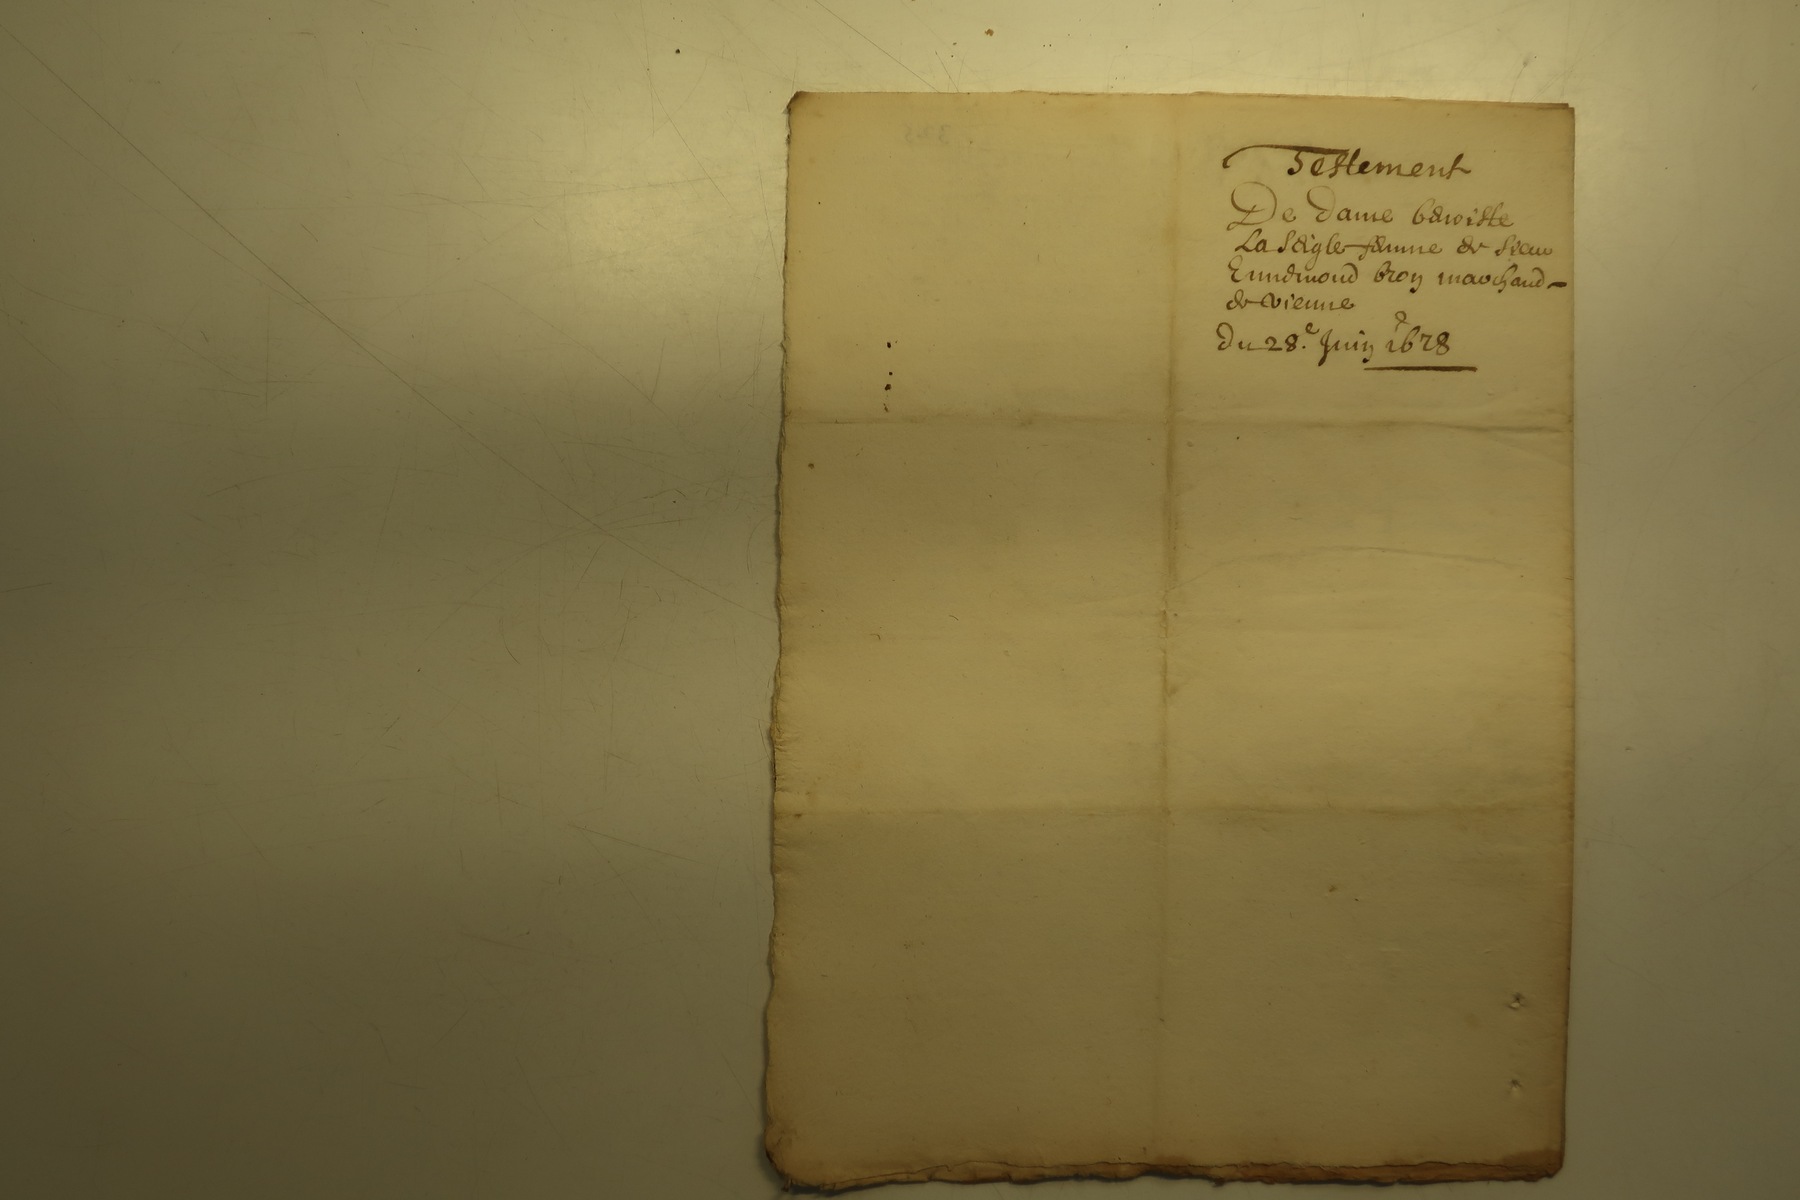 Testement
De dame benoiste
La Seigle femme de sieur
Ennemond bron marchand
de vienne
du 28.e Juin 1678